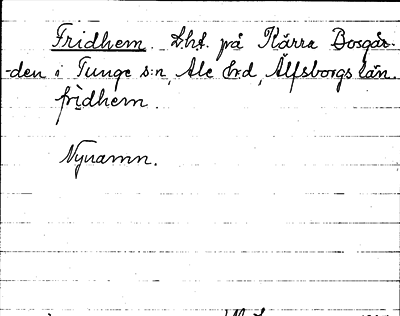 Fridhem. Lht. på Kärra Bosgår-
-den i Tunge s:n, Ale hrd, Älfsborgs län.
frìdhem.
Nynamn.